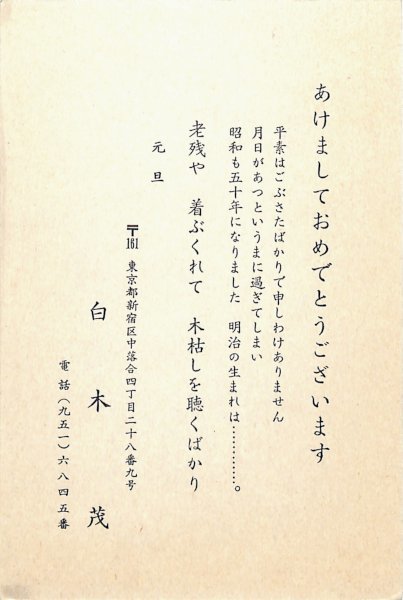 あけましておめでとうございます
平素はごぶさたばかりで申しわけありません
月日があつというまに過ぎてしまい
昭和も五十年になりました　明治の生まれは…………。
老残や　着ぶくれて　木枯しを聴くばかり
元旦
〒161　東京都新宿区中落合四丁目二十八番九号
白木茂
電話(九五一)六八四五番